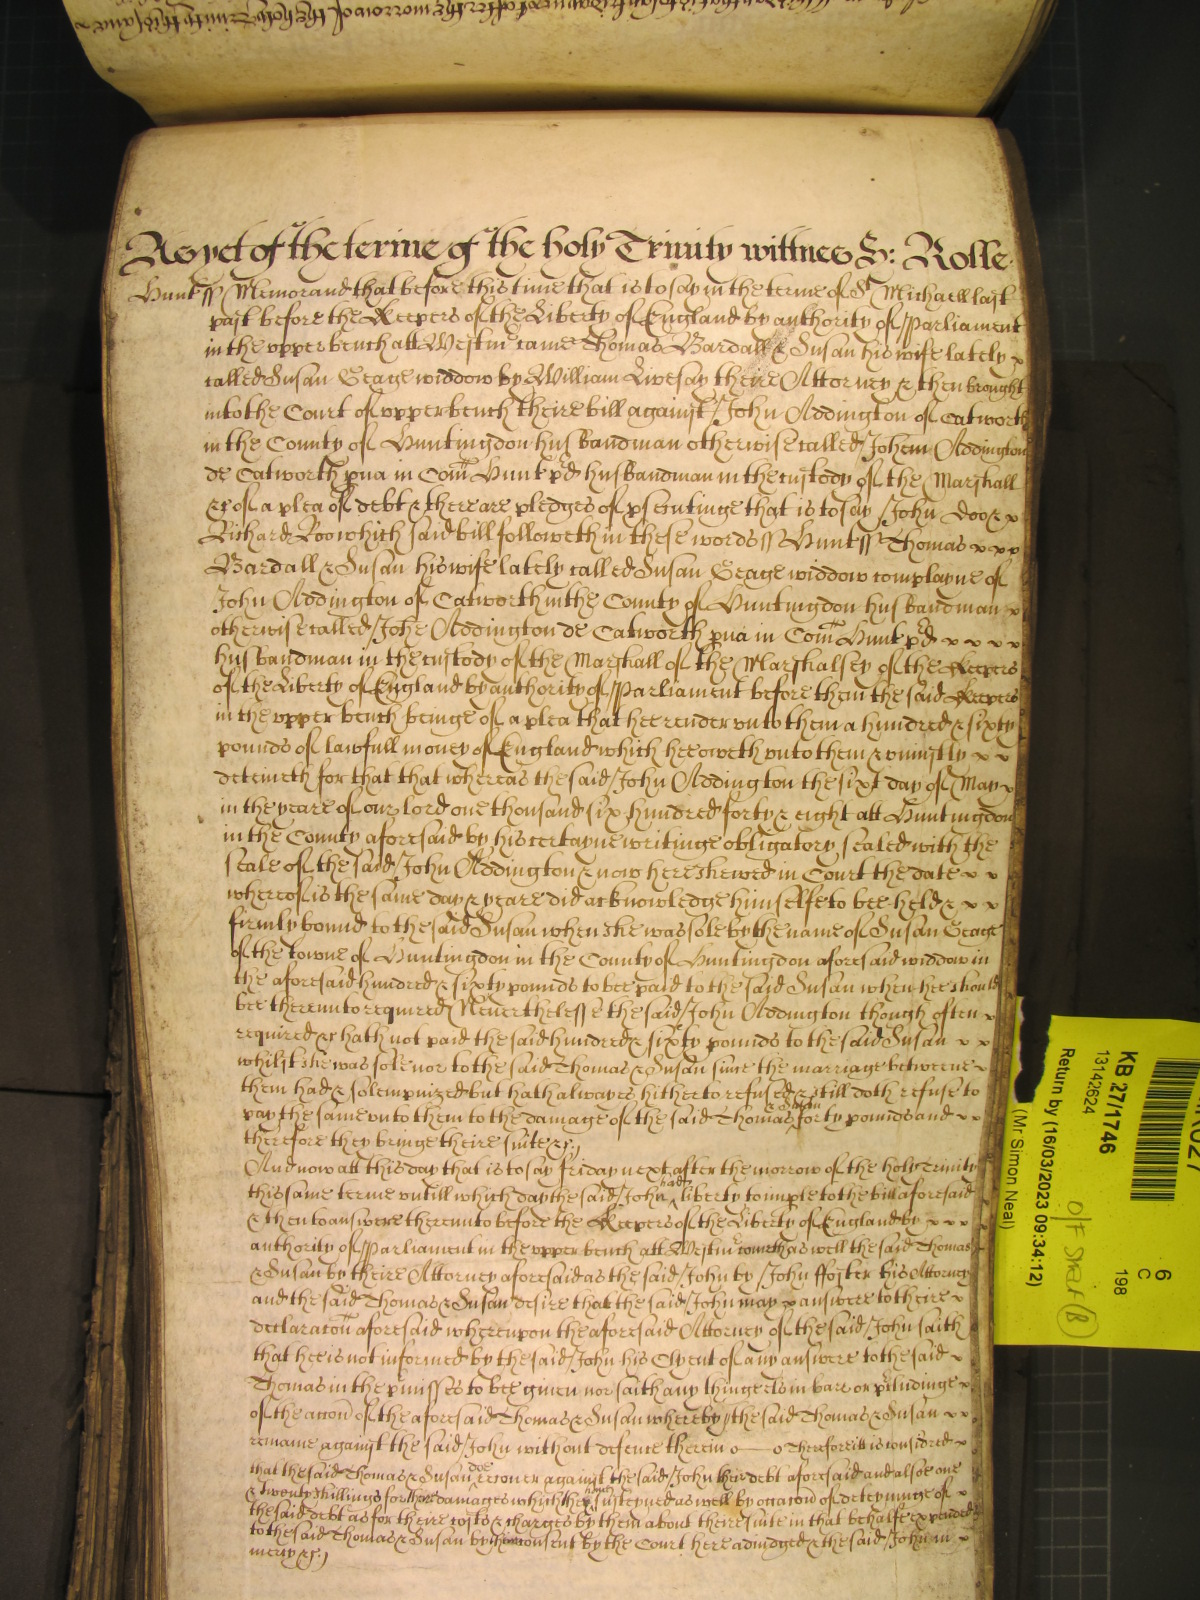 As yet of the terme of the holy Trinity wittnes H: Rolle
Hunt ss Memorand that before this time that is to say in the terme of St Michaell last
past before the Keepers of the Liberty of England by authority of Parliament
in the upper bench att Westmr came Thomas Bardall & Susan his wife lately x
called Susan Geage widdow by William Livesay theire Attorney & then brought
into the Court of upper bench theire bill against John Addington of Catworth
in the County of Huntingdon husbandman otherwise called Johem Addington
de Catworth pua in Com Hunt pd husbandman in the custody of the Marshall
&c of a plea of debt & there are pledges of psecutinge that is to say John Doo & x
Richard Roo which said bill followeth in these words ss Hunt ss Thomas x x x
Bardall & Susan his wife lately called Susan Geage widdow complayne of
John Addington of Catworth in the County of Huntingdon husbandman x
otherwise called Johe Addington de Catworth pua in Com Hunt pd x x x x
husbandman in the custody of the Marshall of the Marshalsey of the Keepers
of the Liberty of England by authority of Parliament before them the said Keepers
in the upper bench beinge of a plea that hee render unto them a hundred & sixty
pounds of lawfull money of England which hee oweth unto them & uniustly x x
deteineth for that that whereas the said John Addington the sixt day of May x
in the yeare of our lord one thousand six hundred forty & eight att Huntingdon
in the County aforesaid by his certayne writinge obligatory sealed with the
seale of the said John Addington & now here shewed in Court the date x x
whereof is the same day & yeare did acknowledge himselfe to bee held & x x
firmly bound to the said Susan when she was sole by the name of Susan Geage
of the towne of Huntingdon in the County of Huntingdon aforesaid widdow in
the aforesaid hundred & sixty pounds to bee paid to the said Susan when hee should
bee thereunto required Neverthelesse the said John Addington though often x
required &c hath not paid the said hundred & sixty pounds to the said Susan x x
whilst she was sole nor to the said Thomas & Susan since the marriage betweene x
them had & solempnized but hath alwayes hitherto refused & still doth refuse to
pay the same unto them to the damage of the said Thomas & Susan forty pounds and x x
therefore they bringe theire suite &c
And now att this day that is to say friday next after the morrow of the holy Trinity
this same terme untill which day the said John had liberty to imple to the bill aforesaid
& then to answere thereunto before the Keepers of the Liberty of England by x x x
authority of Parliament in the upper bench att Westmr cometh as well the said Thomas
& Susan by theire Attorney aforesaid as the said John by John ffoster his Attorney
and the said Thomas & Susan desire that the said John may answere to theire x
declaracon aforesaid whereupon the aforesaid Attorney of the said John saith
that hee is not informed by the said John his Clyent of any answere to the said x
Thomas in the pmisses to bee given nor saith any thinge els in barr or pcludinge x
of the accon of the aforesaid Thomas & Susan whereby the said Thomas & Susan x x
remaine against the said John without defence therein o— o Therefore itt is considered x
that the said Thomas & Susan doe recover against the said John their debt aforesaid and alsoe one
& twenty shillings for their damages which they have susteyned as well by occacon of deteyninge of x
the said debt as for theire costs & charges by them about theire suite in that behalfe expended
to the said Thomas & Susan by their consent by the Court here adiudged & the said John in x
mercy &c
KB 27/1746
13142624
Return by (16/03/2023 09:34:12)
(Mr Simon Neal)
6
C
198
O/F Shelf (B)